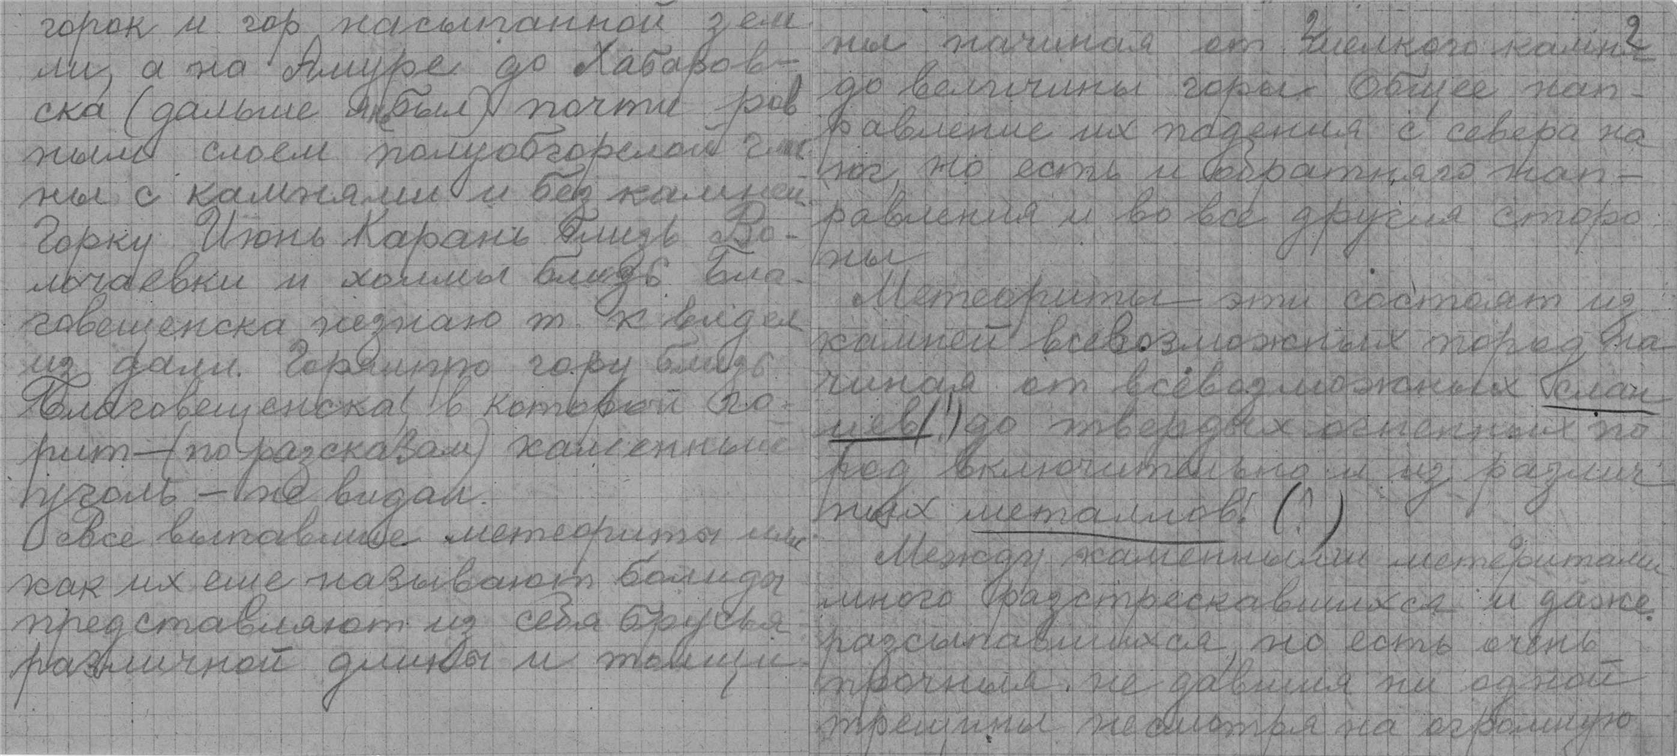 горок и гор насыпанной зем
ли, а на Амуре до Хабаров-
ска (дальше я не был) почти ров
ным слоем полуобгорелой гли
ны с камнями и без камней.
Горку Июнь Карань близь Во-
лочаевки и холмы близь Бла-
говещенска незнаю т. к видел
из дали. Горящую гору близь
Благовещенска, в которой го-
рит – (по разсказам) каменный
уголь – не видал.
Все выпавшие метеориты или
как их еще называют болиды
представляют из себя брусья
различной длины и толщи-
2
ны начиная от мелкого камня
до величины горы. Общее нап-
равление их падения с севера на
юг, но есть и обратняго нап-
равления и во все другия сторо
ны
Метеориты эти состоят из
камней всевозможных пород на
чиная от всевозможных слан
цев (!) до твердых огненных по
род включительно и из различ-
ных металлов! (?)
Между каменными метеритами
много разстрескавшихся и даже
разсыпавшихся, но есть очень
прочныя не давшия ни одной
трещины несмотря на огромную